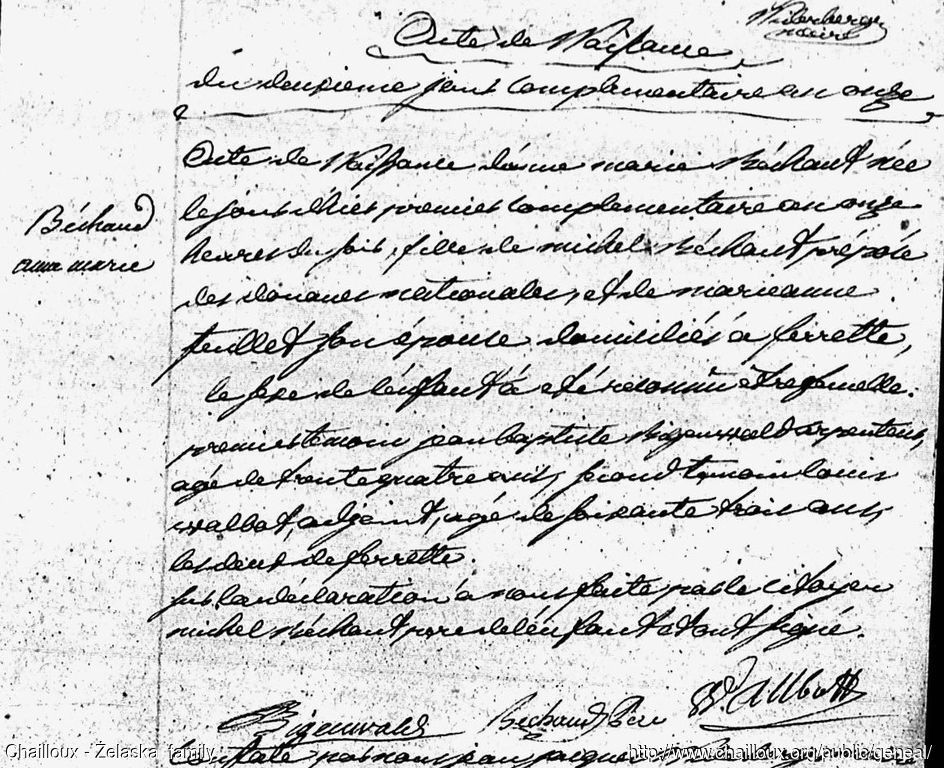 Acte de Naissance
maire
du deuxieme jour complementaire an onze
Acte de Naissance d'anne marie Béchaut née
le jour d'hier premier complementaire an onze
heures du soir, fille de michel Béchaut préposé
des douanes nationales, et de marieanne
feuillet son épouse domiciliés à ferrette,
le sexe de l'énfant à eté reconnû etre femelle.
premier temoin jean baptiste Bigenwald arpenteur,
agé de trente quatre ans, second temoin louis
Walbat, adjoint, agé de soixante trois ans,
les deux de ferrette.
sur la déclaration à nous faite par le citoyen
michel Béchaut pere de l'énfant et ont signé.
Béchaud
anna marie
Bigenwald Béchaud Pere
Constaté par nous jean jacques
Chailloux - Żelaska family
http://www.chailloux.org/public/geneal/